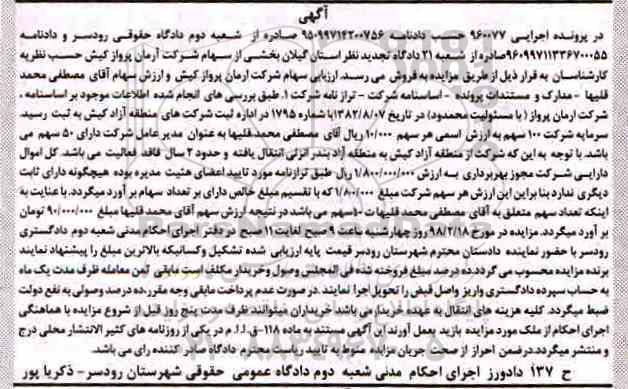 آگهی
در پرونده اجرایی ۹۶۰۰۷۷ حسب دادنامه ۹۵۰۹۹۷۱۴۲۰۰۷۵۶ صادره از شعبه دوم دادگاه حقوقی رودسر و دادنامه
۹۶۰۹۹۷۱۱۳۳۶۷۰۰۰۵۵ صادره از شعبه ۲۱ دادگاه تجدید نظر استان گیلان بخشی از سهام شرکت آرمان پرواز کیش حسب نظریه
کارشناسان به قرار ذیل از طریق مزایده به فروش می رسد. ارزیابی سهام شرکت ارمان پرواز کیش و ارزش سهام آقای مصطفی محمد
قلیها - مدارک و مستندات پرونده - اساسنامه شرکت - تراز نامه شرکت ۱. طبق بررسی های انجام شده اطلاعات موجود بر اساسنامه ،
شرکت ارمان پرواز ( با مسئولیت محدود) در تاریخ ۱۳۸۲/۸/۰۷ با شماره ۱۷۹۵ در اداره ثبت شرکت های منطقه آزاد کیش به ثبت رسید.
سرمایه شرکت ۱۰۰ سهم به ارزش اسمی هر سهم ۱۰/۰۰۰ ریال آقای مصطفی محمد قلیها به عنوان مدیر عامل شرکت دارای ۵۰ سهم می
باشد. با توجه به این که شرکت از منطقه آزاد کیش به منطقه آزاد بندر انزلی انتقال یافته و حدود ۲ سال فاقد فعالیت می باشد. کل اموال
دارایی شرکت مجوز بهره برداری به ارزش ۱/۸۰۰/۰۰۰/۰۰۰ ریال طبق ترازنامه مورد تایید اعضای هیئت مدیره بوده هیچگونه دارای ثابت
دیگری ندارد بنا براین این ارزش هر سهم شرکت مبلغ ۱/۸۰۰/۰۰۰ که با تقسیم مبلغ خالص دارای بر تعداد سهام بر آورد میگردد. با عنایت به
اینکه تعداد سهم متعلق به آقای مصطفی محمد قلیها ۵۰ سهم می باشد در نتیجه ارزش سهم آقای محمد قلیها مبلغ ۹۰/۰۰۰/۰۰۰ تومان
بر آورد میگردد. مزایده در مورخ ۹۸/۲/۱۸ روز چهارشنبه ساعت ۹ صبح لغایت ۱۱ صبح در دفتر اجرای احکام مدنی شعبه دوم دادگستری
رودسر با حضور نماینده دادستان محترم شهرستان رودسر قیمت پایه ارزیابی شده تشکیل وکسانیکه بالاترین مبلغ را پیشنهاد نمایند
برنده مزایده محسوب می گردد. ده درصد مبلغ فروخته شده فی المجلس وصول و خریدار مکلف است مابقی ثمن معامله ظرف مدت یک ماه
به حساب سپرده دادگستری واریز واصل فیش را تحویل اجرا نمایند. در صورت عدم پرداخت مابقی وجه مقرر، ده درصد وصولی به نفع دولت
ضبط میگردد. کلیه هزینه های انتقال به عهده خریدار می باشد. خریداران میتوانند ظرف مدت پنج روز قبل از شروع مزایده با هماهنگی
اجرای احکام از ملک مورد مزایده بازید بعمل آورند این آگهی مستند به ماده ۱۱۸-ق.ا.ا.م در یکی از روزنامه های کثیر الانتشار محلی درج
و منتشر میگردد. در ضمن احراز از صحت جریان مزایده منوط به تایید ریاست محترم دادگاه صادر کننده رای می باشد.
ح ۱۳۷ دادورز اجرای احکام مدنی شعبه دوم دادگاه عمومی حقوقی شهرستان رودسر- ذکریا پور